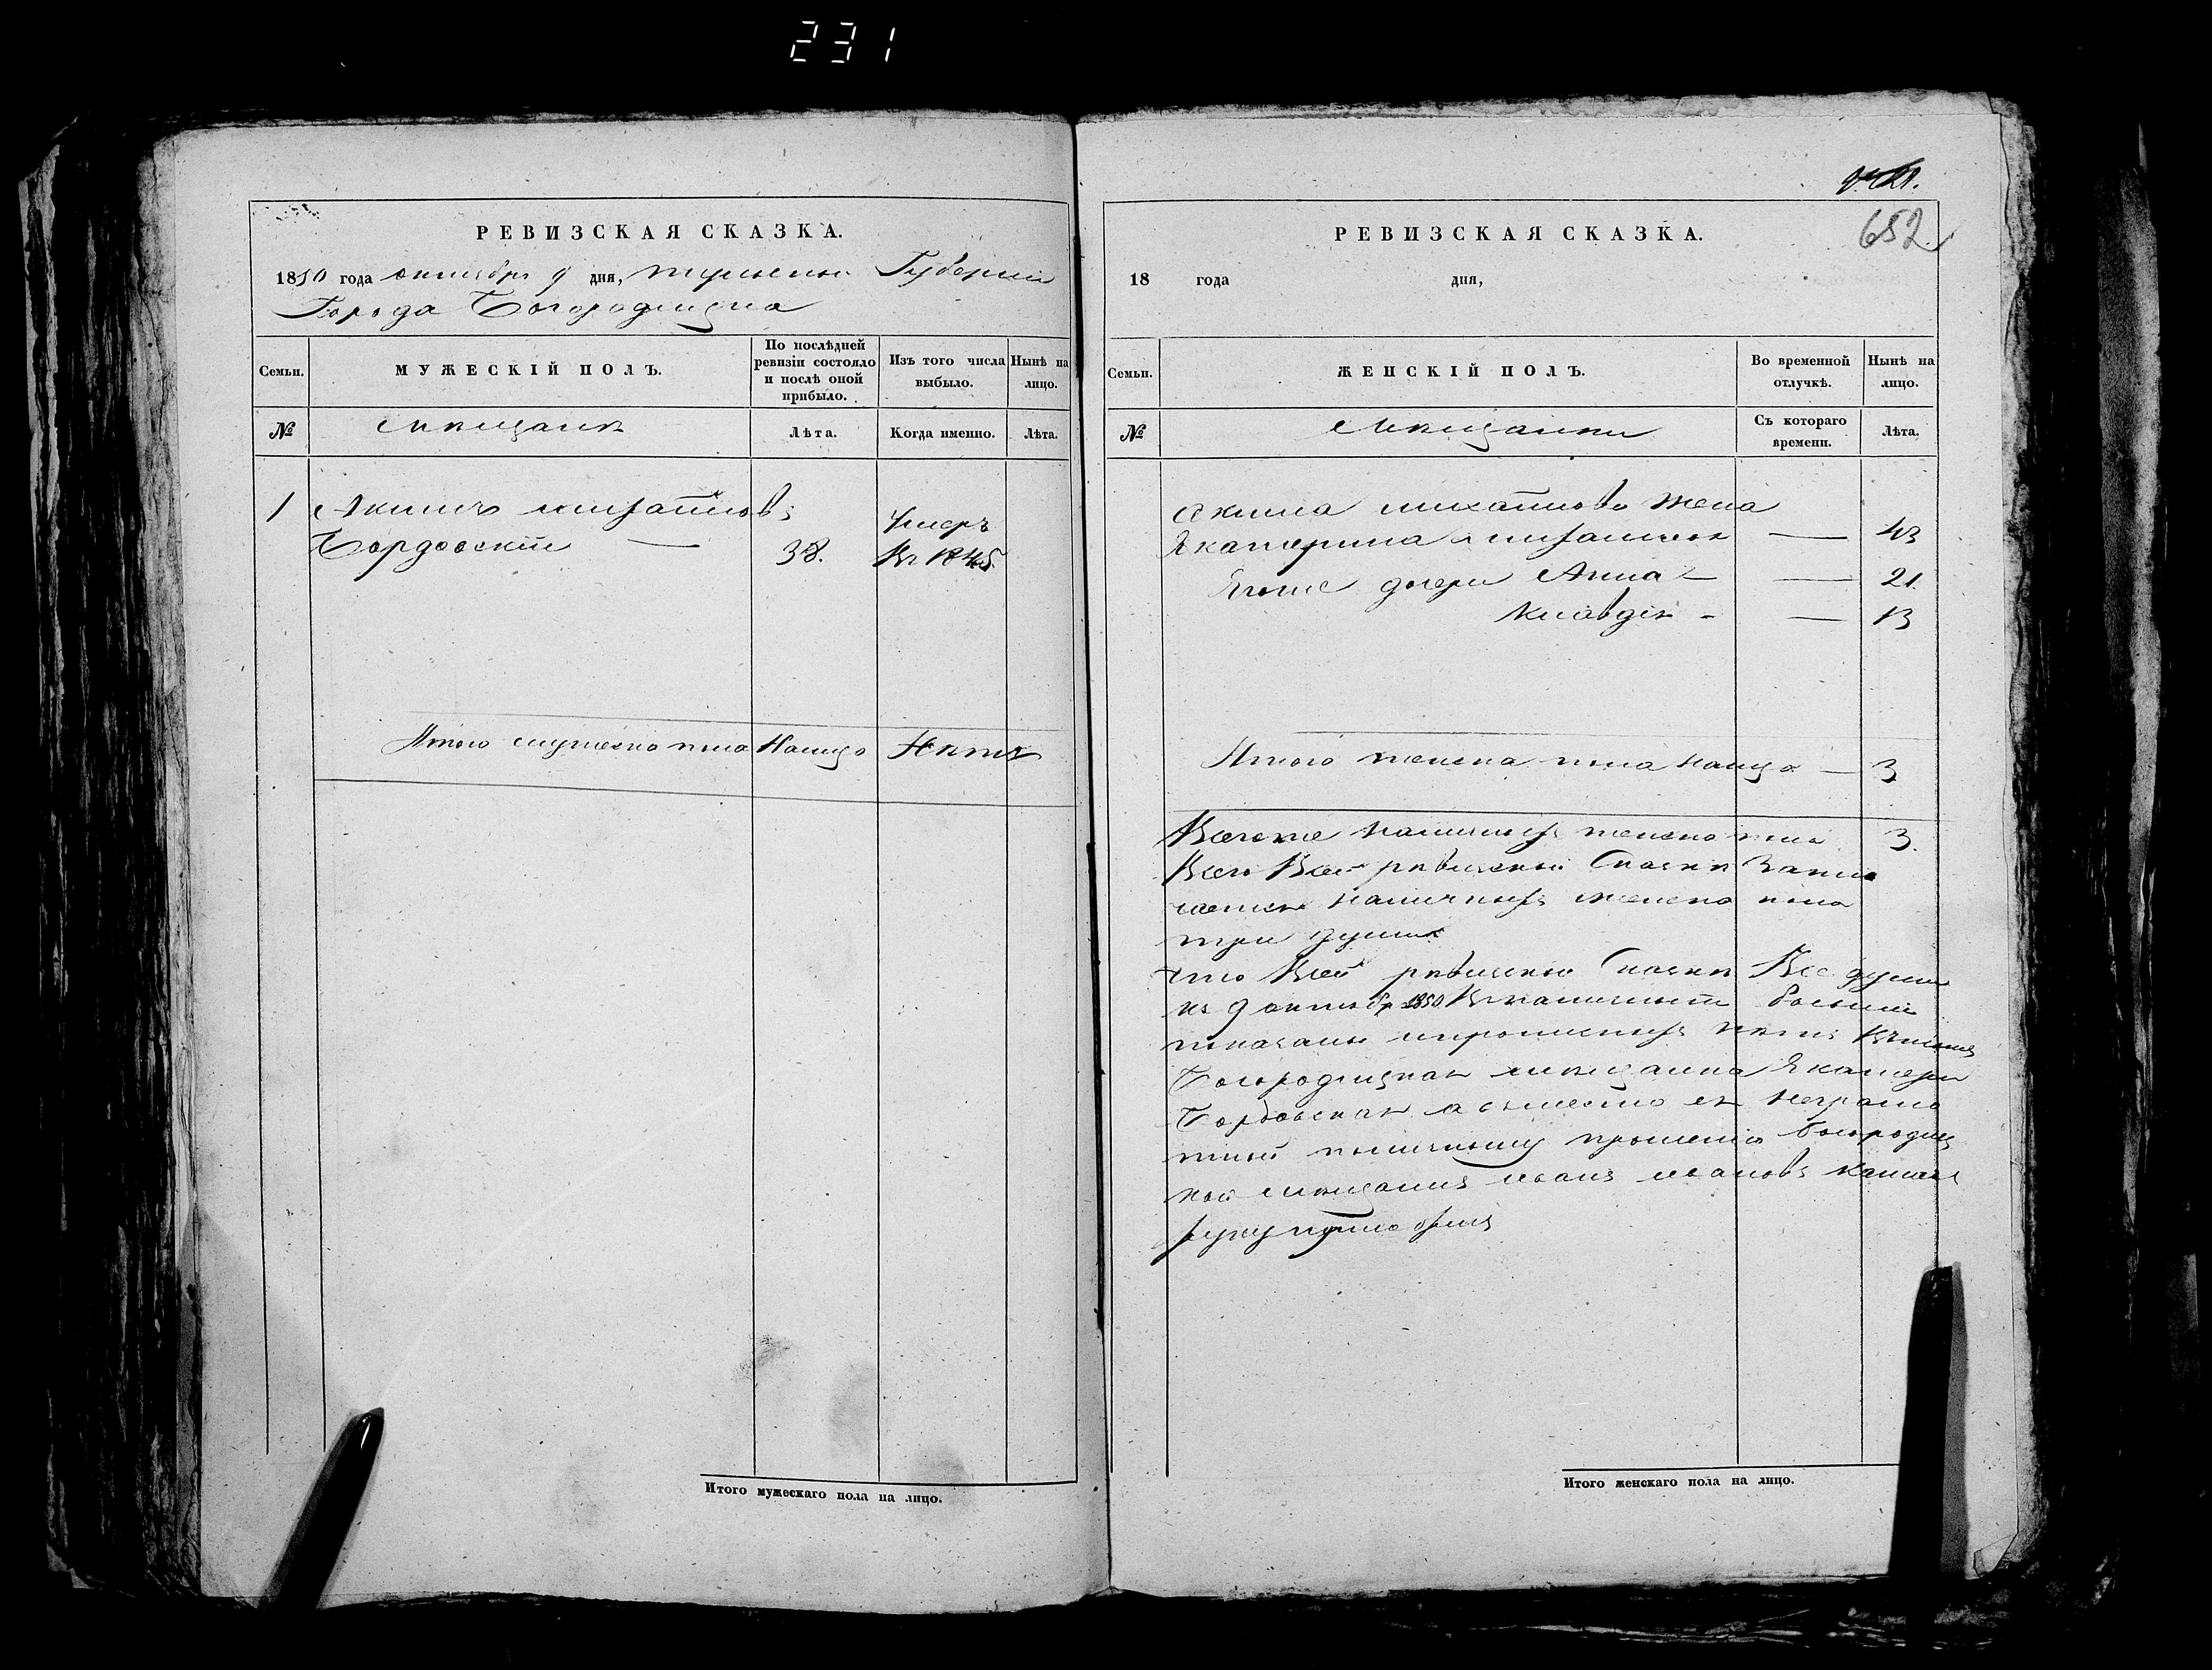 231
РЕВИЗСКАЯ СКАЗКА.
1850 года октября 9 дня, тульской Губернии
Города Богородицка
Семьи.
МУЖЕСКІЙ ПОЛЪ.
По послѣдней ревизіи состояло и послѣ оной прибыло.
Изъ того числа выбыло.
Нынѣ на лицо.
№
мещанѣ
Лѣта.
Когда именно.
Лѣта.
1 Акимъ михайловъ
Бордовскій — 38.
Умеръ
въ 1845
Итого мужеска пола налицо Нѣтъ
Итого мужескаго пола на лицо.
652
РЕВИЗСКАЯ СКАЗКА.
18 года дня,
Семьи.
ЖЕНСКІЙ ПОЛЪ.
Во временной отлучкѣ.
Нынѣ на лицо.
№
мещанки
Съ котораго времени.
Лѣта.
Акима михайлова жена
Екатерина — 43
Ягоже дочери Анна — — 21.
Клавдія - — 13
Итого женска пола налицо — 3
Всегоже наличныхъ женска пола 3.
Всего Всей ревиской Сказки Заклю
чается наличныхъ женска пола
три души
что Всей Сказки Все души
къ 9 октября 1850 Вналичности
показаны ипрописныхъ нетъ
Богородицкая мещанка Екатери
Бордовская а вместо ея неграмо
тной поличному прошенію богородиц
кой мещанинъ иванъ ивановъ
руку приложилъ
Итого женскаго пола на лицо.